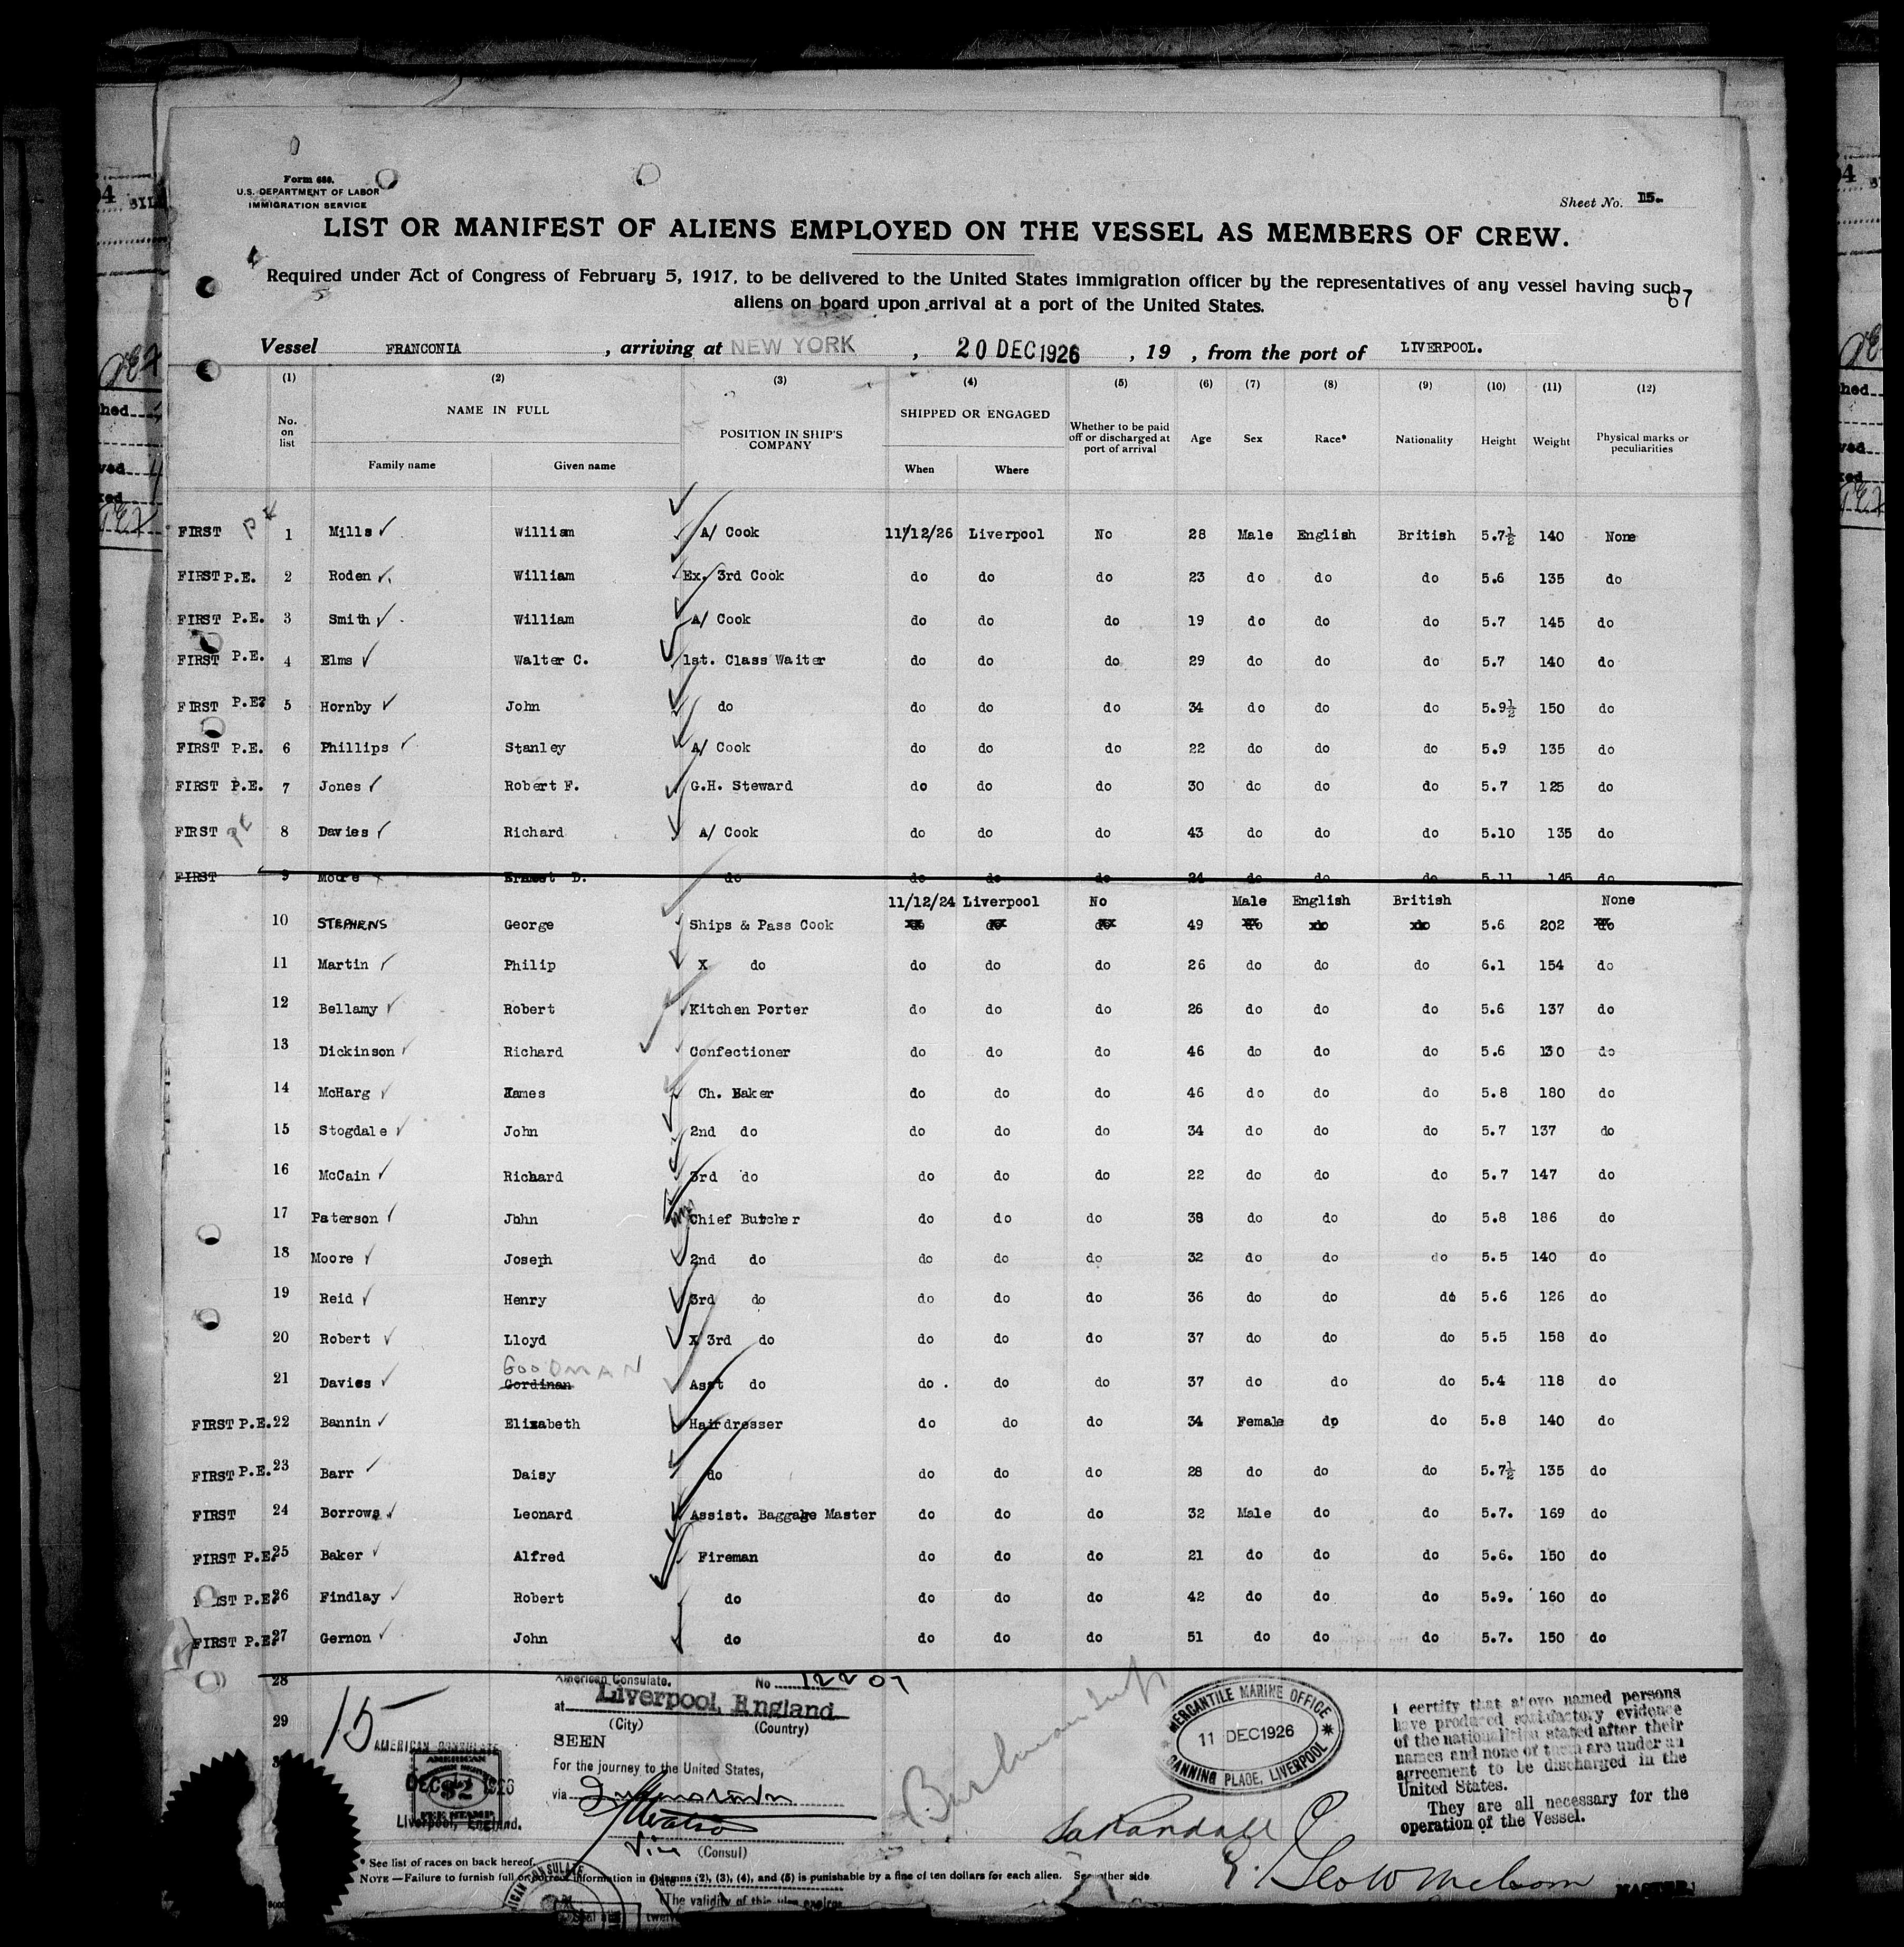 Form 680.
U.S. DEPARTMENT OF LABOR
IMMIGRATION SERVICE
Sheet No. 15.
LIST OR MANIFEST OF ALIENS EMPLOYED ON THE VESSEL AS MEMBERS OF CREW.
Required under Act of Congress of February 5, 1917, to be delivered to the United States immigration officer by the representatives of any vessel having such
aliens on board upon arrival at a port of the United States.
67
Vessel FRANCONIA , arriving at NEW YORK , 20 DEC 1926 , 19 , from the port of LIVERPOOL.
(1) (2) (3) (4) (5) (6) (7) (8) (9) (10) (11) (12)
No. on list NAME IN FULL Family name Given name POSITION IN SHIP'S COMPANY SHIPPED OR ENGAGED When Where Whether to be paid off or discharged at port of arrival Age Sex Race* Nationality Height Weight Physical marks or peculiarities
FIRST PE 1 Mills William A/ Cook 11/12/26 Liverpool No 28 Male English British 5.7½ 140 None
FIRST P.E. 2 Roden William Ex. 3rd Cook do do do 23 do do do 5.6 135 do
FIRST P.E. 3 Smith William A/ Cook do do do 19 do do do 5.7 145 do
FIRST P.E. 4 Elms Walter C. 1st. Class Waiter do do do 29 do do do 5.7 140 do
FIRST P.E? 5 Hornby John do do do do 34 do do do 5.9½ 150 do
FIRST P.E. 6 Phillips Stanley A/ Cook do do do 22 do do do 5.9 135 do
FIRST P.E. 7 Jones Robert F. G.H. Steward do do do 30 do do do 5.7 125 do
FIRST PE 8 Davies Richard A/ Cook do do do 43 do do do 5.10 135 do
FIRST 9 Moore Ernest D. do do do do 24 do do do 5.11 145 do
11/12/24 Liverpool No Male English British None
10 STEPHENS George Ships & Pass Cook do do do 49 do do do 5.6 202 do
11 Martin Philip X do do do do 26 do do do 6.1 154 do
12 Bellamy Robert Kitchen Porter do do do 26 do do do 5.6 137 do
13 Dickinson Richard Confectioner do do do 46 do do do 5.6 130 do
14 McHarg James Ch. Baker do do do 46 do do do 5.8 180 do
15 Stogdale John 2nd do do do do 34 do do do 5.7 137 do
16 McCain Richard 3rd do do do do 22 do do do 5.7 147 do
17 Paterson John Chief Butcher do do do 38 do do do 5.8 186 do
18 Moore Joseph 2nd do do do do 32 do do do 5.5 140 do
19 Reid Henry 3rd do do do do 36 do do do 5.6 126 do
20 Robert Lloyd X 3rd do do do do 37 do do do 5.5 158 do
GOODMAN
21 Davies Gordinan Asst do do . do do 37 do do do 5.4 118 do
FIRST P.E. 22 Bannin Elizabeth Hairdresser do do do 34 Female do do 5.8 140 do
FIRST P.E. 23 Barr Daisy do do do do 28 do do do 5.7½ 135 do
FIRST 24 Borrows Leonard Assist. Baggage Master do do do 32 Male do do 5.7. 169 do
FIRST P.E. 25 Baker Alfred Fireman do do do 21 do do do 5.6. 150 do
ST P.E. 26 Findlay Robert do do do do 42 do do do 5.9. 160 do
FIRST P.E. 27 Gernon John do do do do 51 do do do 5.7. 150 do
28
29
15
American Consulate. No 12207
at Liverpool, England
(City) (Country)
SEEN
For the journey to the United States,
via
(Consul)
AMERICAN CONSULATE
AMERICAN
DEC 1926
$2
FEE STAMP
Liverpool, England.
MERCANTILE MARINE OFFICE
11 DEC 1926
CANNING PLACE, LIVERPOOL
I certify that above named persons
have produced satisfactory evidence
of the nationalities stated after their
names and none of them are under an
agreement to be discharged in the
United States.
They are all necessary for the
operation of the Vessel.
* See list of races on back hereof.
NOTE—Failure to furnish full or correct information in columns (2), (3), (4), and (5) is punishable by a fine of ten dollars for each alien. See other side
The validity of this visa expires
MASTER